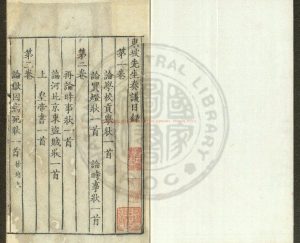 東坡先生奏議目錄
第一卷
論學校貢舉狀一首
論買燈狀一首 論時事狀一首
第二卷
再論時事狀一首
論河北京東盜賊狀一首
上皇帝書一首
第三卷
論獄囚病死狀一首
RAL LIBRARY